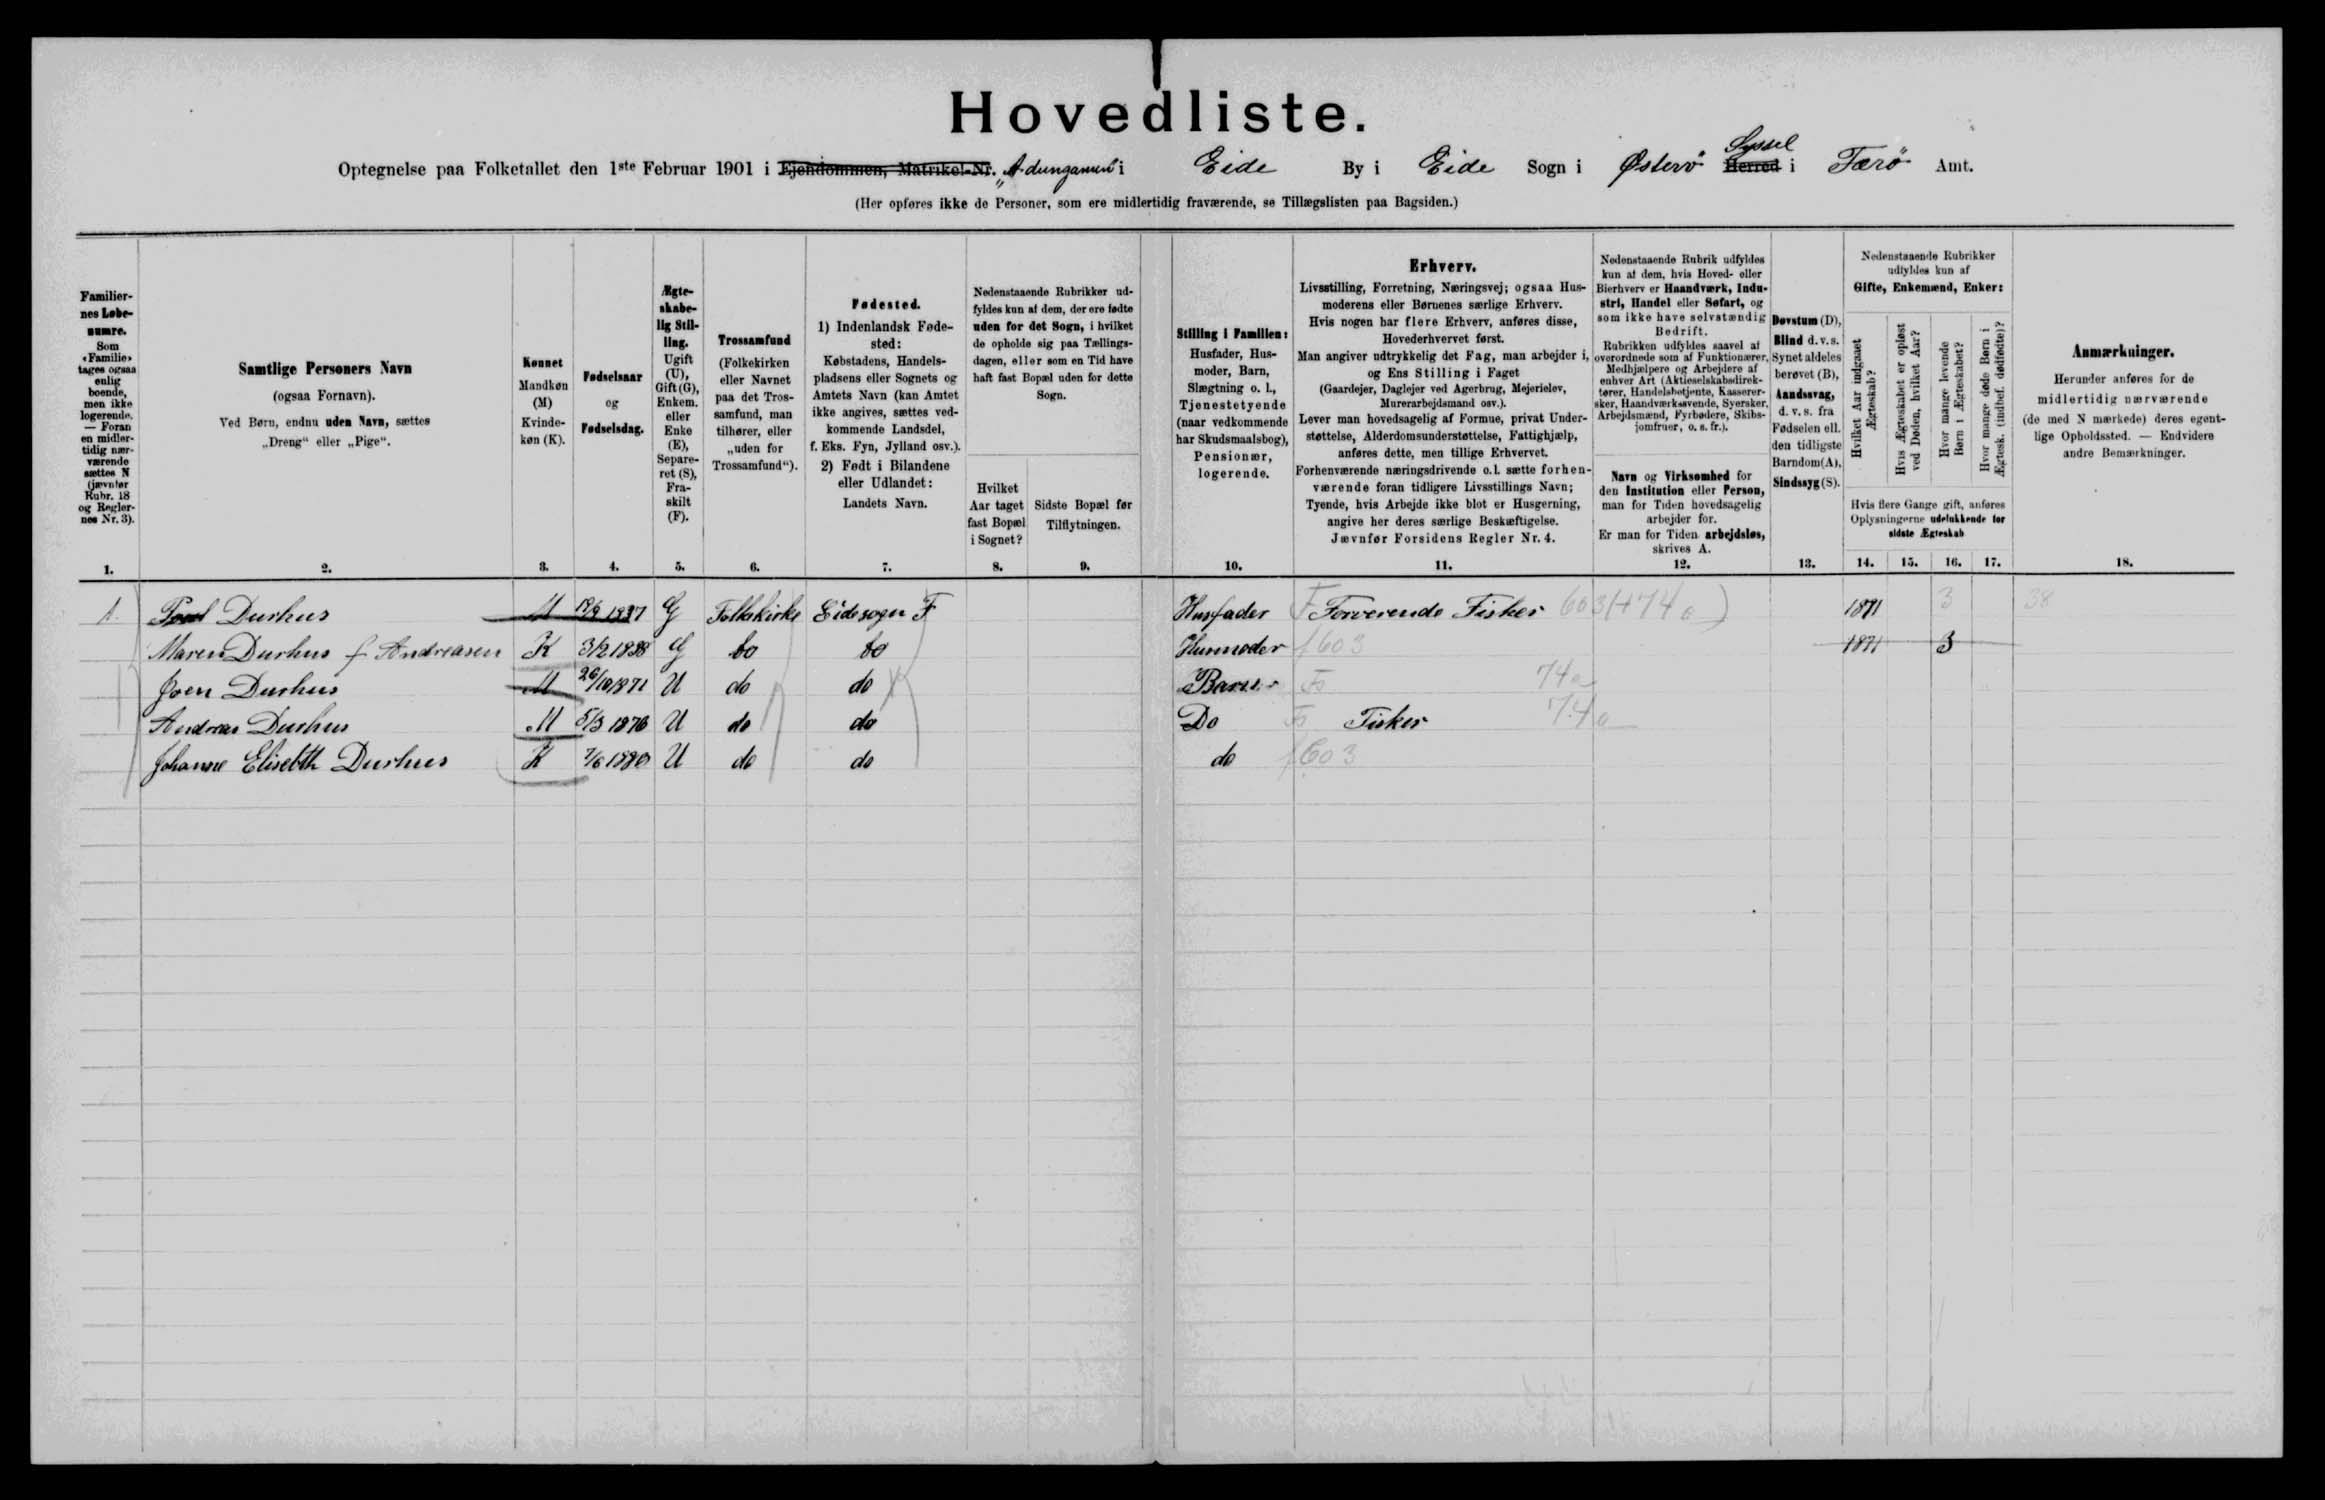 Hovedliste.
Optegnelse paa Folketallet den 1ste Februar 1901 i Ejendommen, Matrikel-Nr. i Eide By i Eide Sogn i Østerö Herred Syssel i Færö Amt.
(Her opføres ikke de Personer, som ere midlertidig fraværende, se Tillægslisten paa Bagsiden.)
Familiernes Løbenumre. Som «Familie» tages ogsaa enlig boende, men ikke logerende. — Foran en midlertidig nærværende sættes N (jævnfør Rubr. 18 og Reglernes Nr. 3).
Samtlige Personers Navn
(ogsaa Fornavn).
Ved Børn, endnu uden Navn, sættes
„Dreng“ eller „Pige“.
Kønnet
Mandkøn (M)
Kvindekøn (K).
Fødselsaar
og
Fødselsdag.
Ægteskabelig Stilling. Ugift (U), Gift (G), Enkem. eller Enke (E), Separeret (S), Fraskilt (F).
Trossamfund
(Folkekirken eller Navnet paa det Trossamfund, man tilhører, eller „uden for Trossamfund“).
Fødested.
1) Indenlandsk Fødested:
Købstadens, Handelspladsens eller Sognets og Amtets Navn (kan Amtet ikke angives, sættes vedkommende Landsdel, f. Eks. Fyn, Jylland osv.).
2) Født i Bilandene eller Udlandet:
Landets Navn.
Nedenstaaende Rubrikker udfyldes kun af dem, der ere fødte uden for det Sogn, i hvilket de opholde sig paa Tællingsdagen, eller som en Tid have haft fast Bopæl uden for dette Sogn.
Hvilket Aar taget fast Bopæl i Sognet?
Sidste Bopæl før Tilflytningen.
Stilling i Familien:
Husfader, Husmoder, Barn, Slægtning o. l., Tjenestetyende (naar vedkommende har Skudsmaalsbog), Pensionær, logerende.
Erhverv.
Livsstilling, Forretning, Næringsvej; ogsaa Husmoderens eller Børnenes særlige Erhverv.
Hvis nogen har flere Erhverv, anføres disse, Hovederhvervet først.
Man angiver udtrykkelig det Fag, man arbejder i, og Ens Stilling i Faget
(Gaardejer, Daglejer ved Agerbrug, Mejerielev, Murerarbejdsmand osv.).
Lever man hovedsagelig af Formue, privat Understøttelse, Alderdomsunderstøttelse, Fattighjælp, anføres dette, men tillige Erhvervet.
Forhenværende næringsdrivende o.l. sætte forhenværende foran tidligere Livsstillings Navn;
Tyende, hvis Arbejde ikke blot er Husgerning, angive her deres særlige Beskæftigelse.
Jævnfør Forsidens Regler Nr. 4.
Nedenstaaende Rubrik udfyldes kun af dem, hvis Hoved- eller Bierhverv er Haandværk, Industri, Handel eller Søfart, og som ikke have selvstændig Bedrift.
Rubrikken udfyldes saavel af overordnede som af Funktionærer, Medhjælpere og Arbejdere af enhver Art (Aktieselskabsdirektører, Handelsbetjente, Kasserersker, Haandværkssvende, Syersker, Arbejdsmænd, Fyrbødere, Skibsjomfruer, o. s. fr.).
Navn og Virksomhed for den Institution eller Person, man for Tiden hovedsagelig arbejder for.
Er man for Tiden arbejdsløs, skrives A.
Døvstum (D), Blind d. v. s. Synet aldeles berøvet (B), Aandssvag, d. v. s. fra Fødselen ell. den tidligste Barndom (A), Sindssyg (S).
Nedenstaaende Rubrikker udfyldes kun af
Gifte, Enkemænd, Enker:
Hvilket Aar indgaaet Ægteskab?
Hvis Ægteskabet er opløst ved Døden, hvilket Aar?
Hvor mange levende Børn i Ægteskabet?
Hvor mange døde Børn i Ægtesk. (indbef. dødfødte)?
Hvis flere Gange gift, anføres Oplysningerne udelukkende for sidste Ægteskab
Anmærkninger.
Herunder anføres for de midlertidig nærværende (de med N mærkede) deres egentlige Opholdssted. — Endvidere andre Bemærkninger.
1. 2. 3. 4. 5. 6. 7. 8. 9. 10. 11. 12. 13. 14. 15. 16. 17. 18.
1. Poul Durhus M 1837 G Folkekirke Eide sogn F Husfader F Forverende Fisker 603 (+74a) 1871 3 38
Maren Durhus f Andreasen K 3/2 1838 G do do Husmoder f 603 1871 3
Joen Durhus M 26/10 1871 U do do Barn Fs 74a
Andreas Durhus M 5/3 1876 U do do Do Fs Fisker 74a
Johanne Elisebth Durhus K 7/6 1880 U do do do f 603